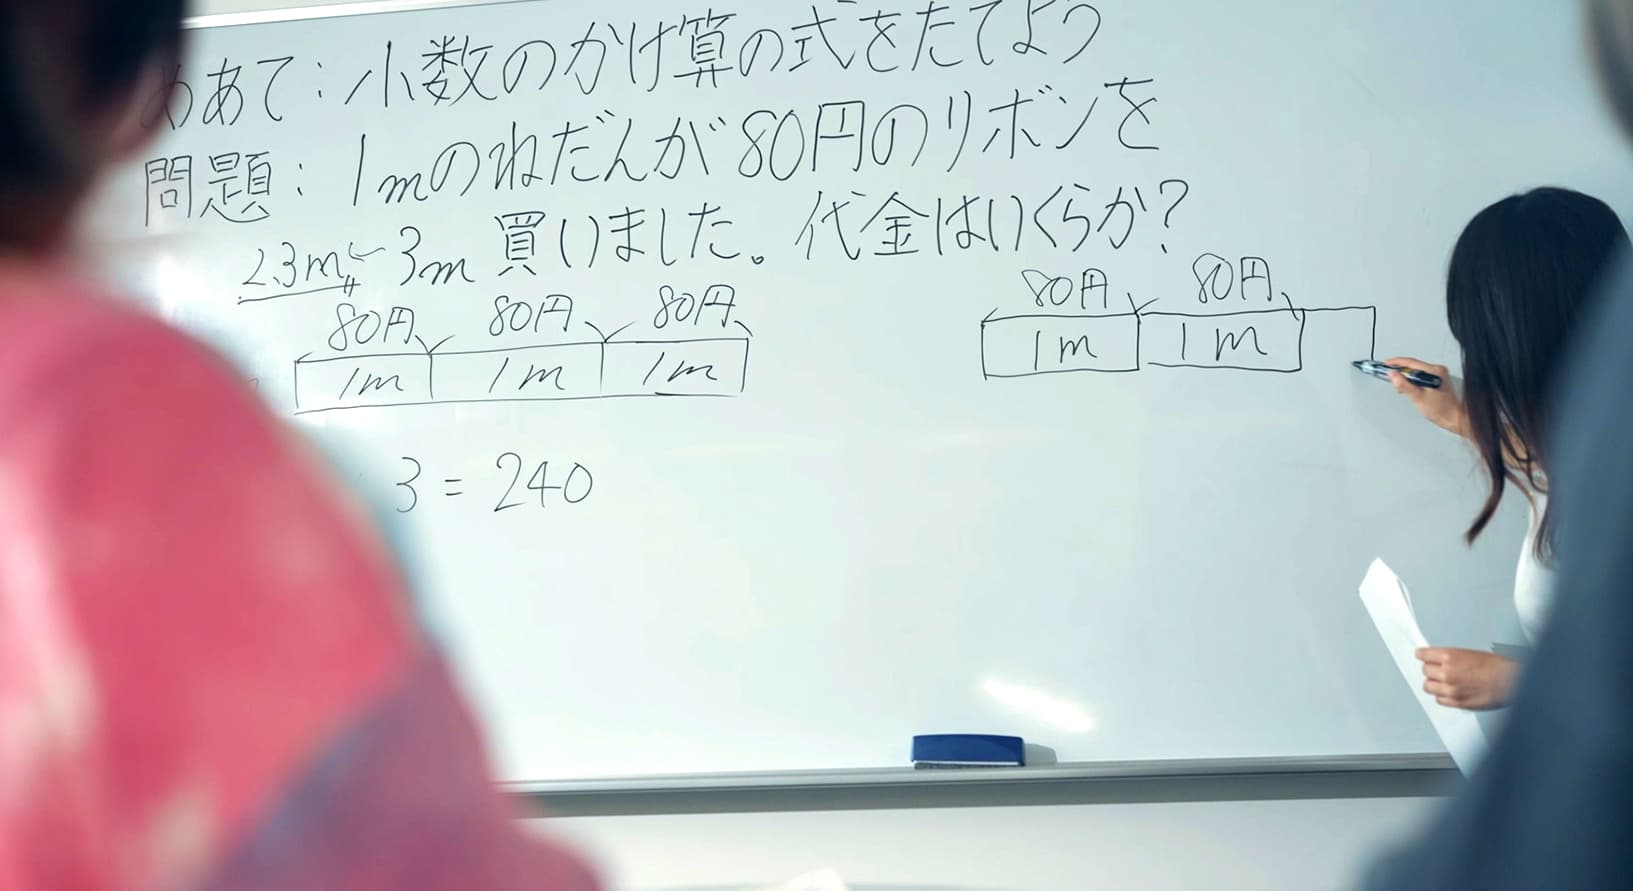 めあて：小数のかけ算の式をたてよう
問題：1mのねだんが80円のリボンを
2.3m 3m 買いました。代金はいくらか?
80円 80円 80円
1m 1m 1m
80円 80円
1m 1m
3 = 240